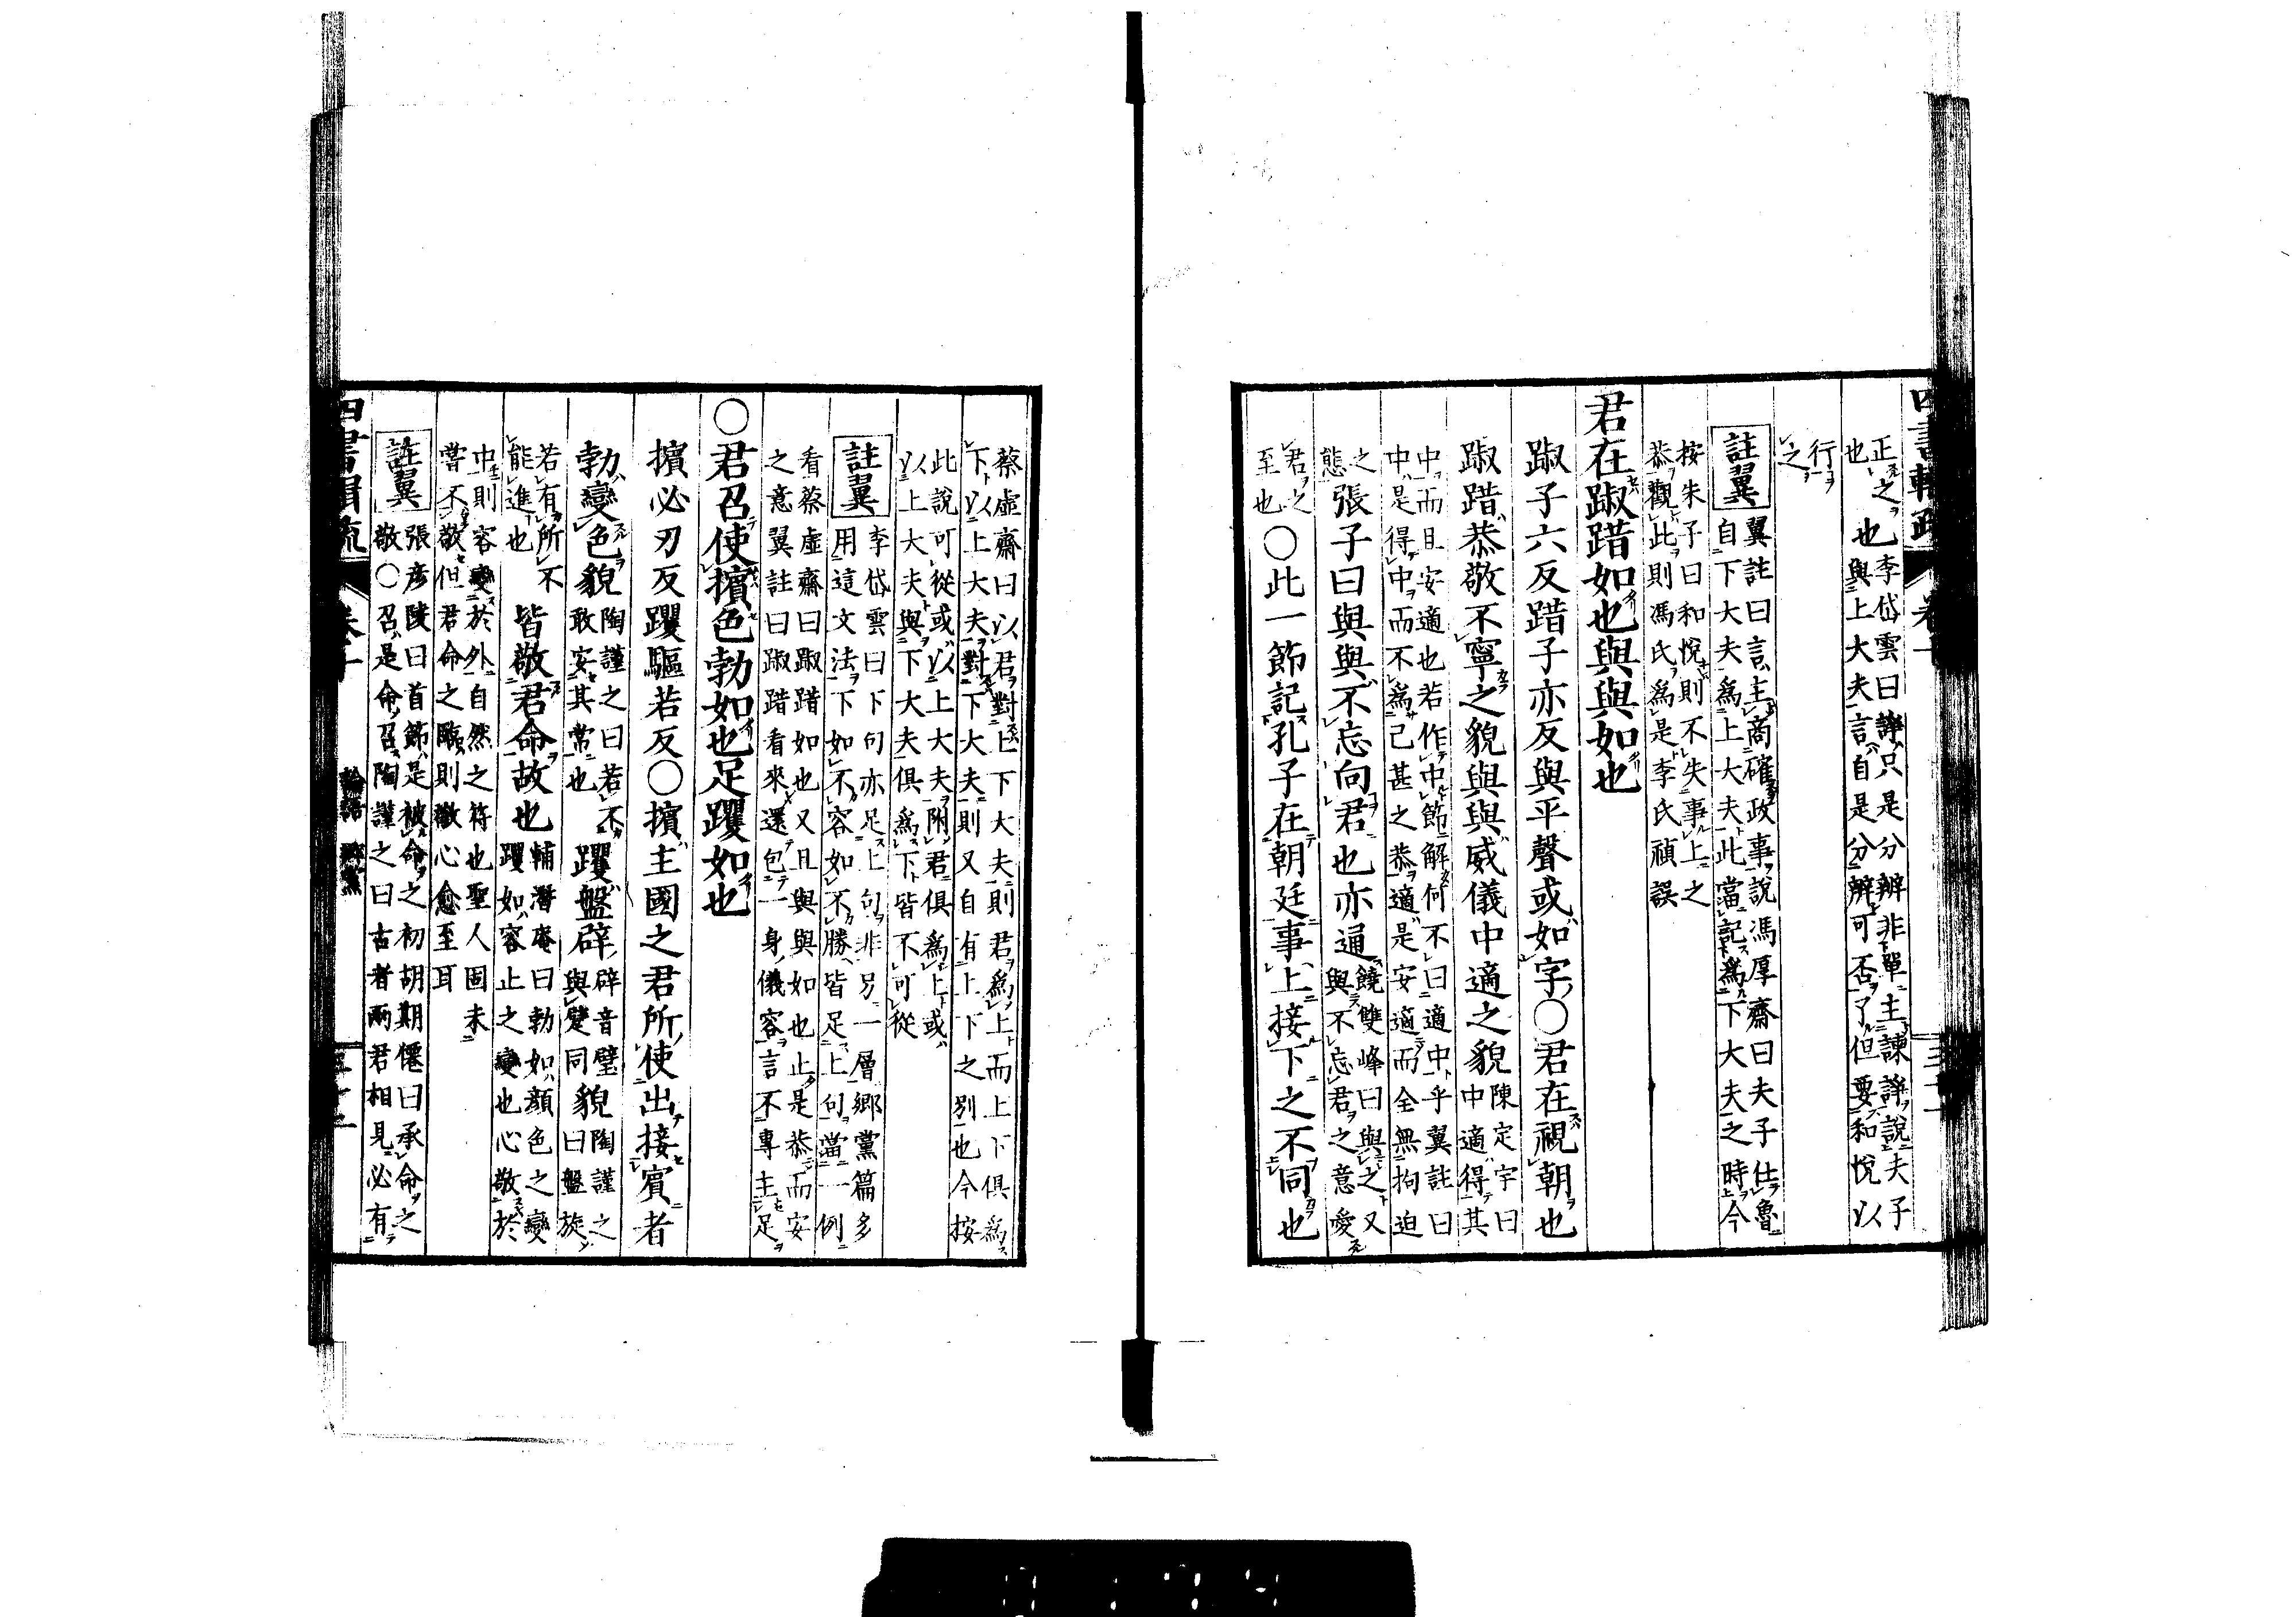 正之
也
也
李岱雲曰諍只是分辨非單主諫諍說夫子
與上大夫言自是分辨可否了但要和悅以
行
之
註翼
翼註曰言主商確政事說馮厚齋曰夫子仕魯
自下大夫爲上大夫此當記爲下大夫之時今
按朱子曰和悅則不失事上之
恭觀此則馮氏爲是李氏禎誤
君在踧踖如也與與如也
踧子六反踖子亦反與平聲或如字〇君在視朝也
踧踖恭敬不寧之貌與與威儀中適之貌
陳定宇曰
中適得其
中而且安適也若作中節解何不曰適中乎翼註曰
中是得中而不爲己甚之恭適是安適而全無拘迫
之
態
張子曰與與不忘向君也亦通
饒雙峰曰與之又
與不忘君之意愛
君之
至也
〇此一節記孔子在朝廷事上接下之不同也
蔡虛齋曰以君對上下大夫則君爲上而上下俱爲
下以上大夫對下大夫則又自有上下之別也今按
此說可從或以上大夫附君俱爲上或
以上大夫與下大夫俱爲下皆不可從
註翼
李岱雲曰下句亦足上句非另一層鄉黨篇多
用這文法下如不容如不勝皆足上句當一例
看蔡虛齋曰踧踖如也又且與與如也止是恭而安
之意翼註曰踧踖看來還包一身儀容言不專主足
〇君召使擯色勃如也足躩如也
擯必刃反躩驅若反〇擯主國之君所使出接賓者
勃變色貌
陶謹之曰若不
敢安其常也
躩盤辟
辟音璧
與躄同
貌
陶謹之
曰盤旋
若有所不
能進也
皆敬君命故也
輔潛庵曰勃如顏色之變
躩如容止之變也心敬於
中則容變於外自然之符也聖人固未
嘗不敬但君命之臨則敬心愈至耳
註翼
張彥陵曰首節是被命之初胡期僊曰承命之
敬〇召是命召陶謹之曰古者兩君相見必有
四書輯疏
卷十
論語 鄉黨